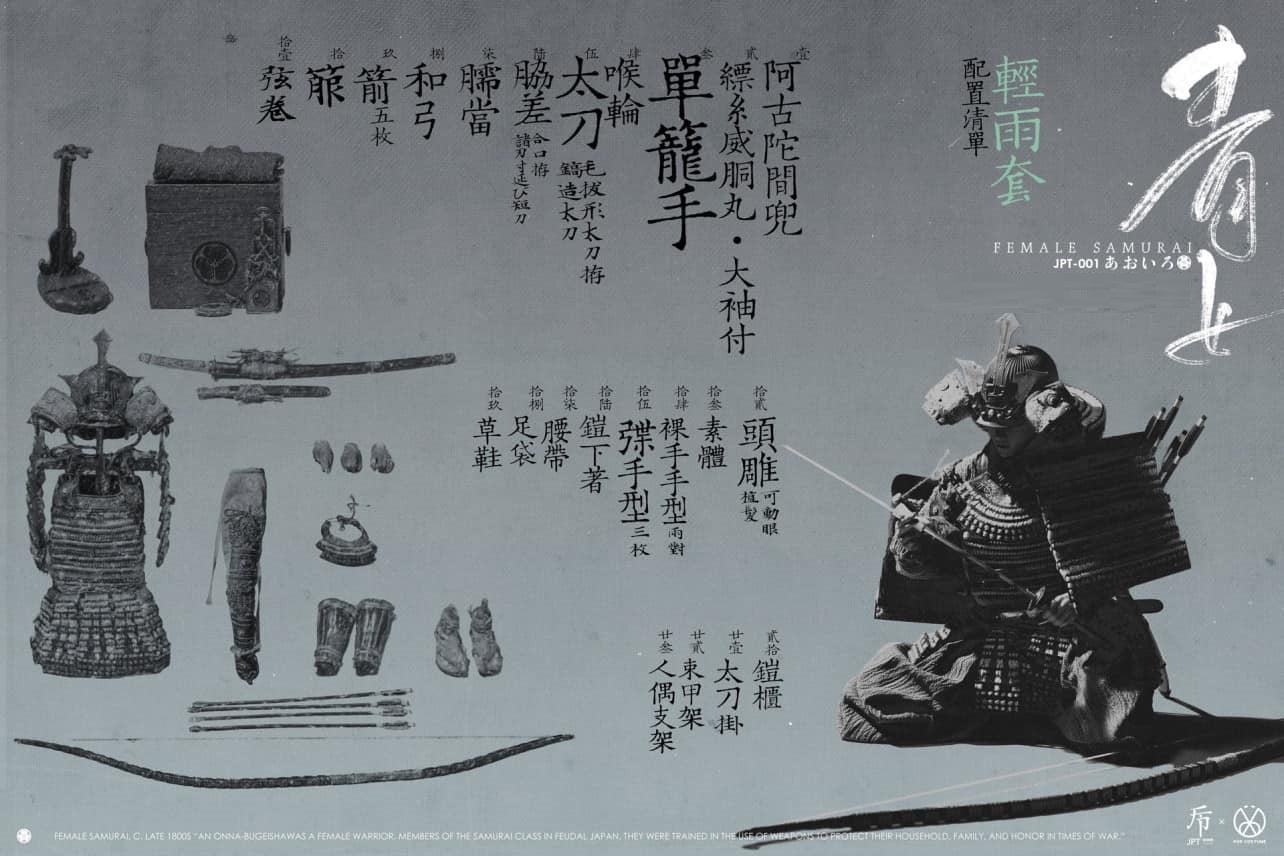 青女
輕雨套
配置清單
FEMALE SAMURAI
JPT-001 あおいろ
壹
阿古陀間兜
貳
縹糸威胴丸・大袖付
叁
單籠手
肆
喉輪
伍
太刀
毛拔形太刀拵
鎬造太刀
陸
脇差
合口拵
諸刃寸延び短刀
柒
臑當
捌
和弓
玖
箭 五枚
拾
箙
拾壹
弦卷
拾貳
頭雕
可動眼
植髮
拾叁
素體
拾肆
裸手手型 兩對
拾伍
弽手型 三枚
拾陸
鎧下著
拾柒
腰帶
拾捌
足袋
拾玖
草鞋
貳拾
鎧櫃
廿壹
太刀掛
廿貳
束甲架
廿叁
人偶支架
FEMALE SAMURAI, C. LATE 1800S "AN ONNA-BUGEISHAWAS A FEMALE WARRIOR. MEMBERS OF THE SAMURAI CLASS IN FEUDAL JAPAN, THEY WERE TRAINED IN THE USE OF WEAPONS TO PROTECT THEIR HOUSEHOLD, FAMILY, AND HONOR IN TIMES OF WAR."
JPT
×
POP COSTUME